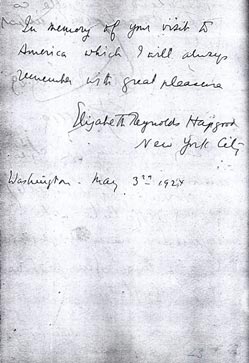 In memory of your visit to
America which I will always
remember with great pleasure
Elizabeth Reynolds Hapgood
New York City
Washington. May 3rd 1924